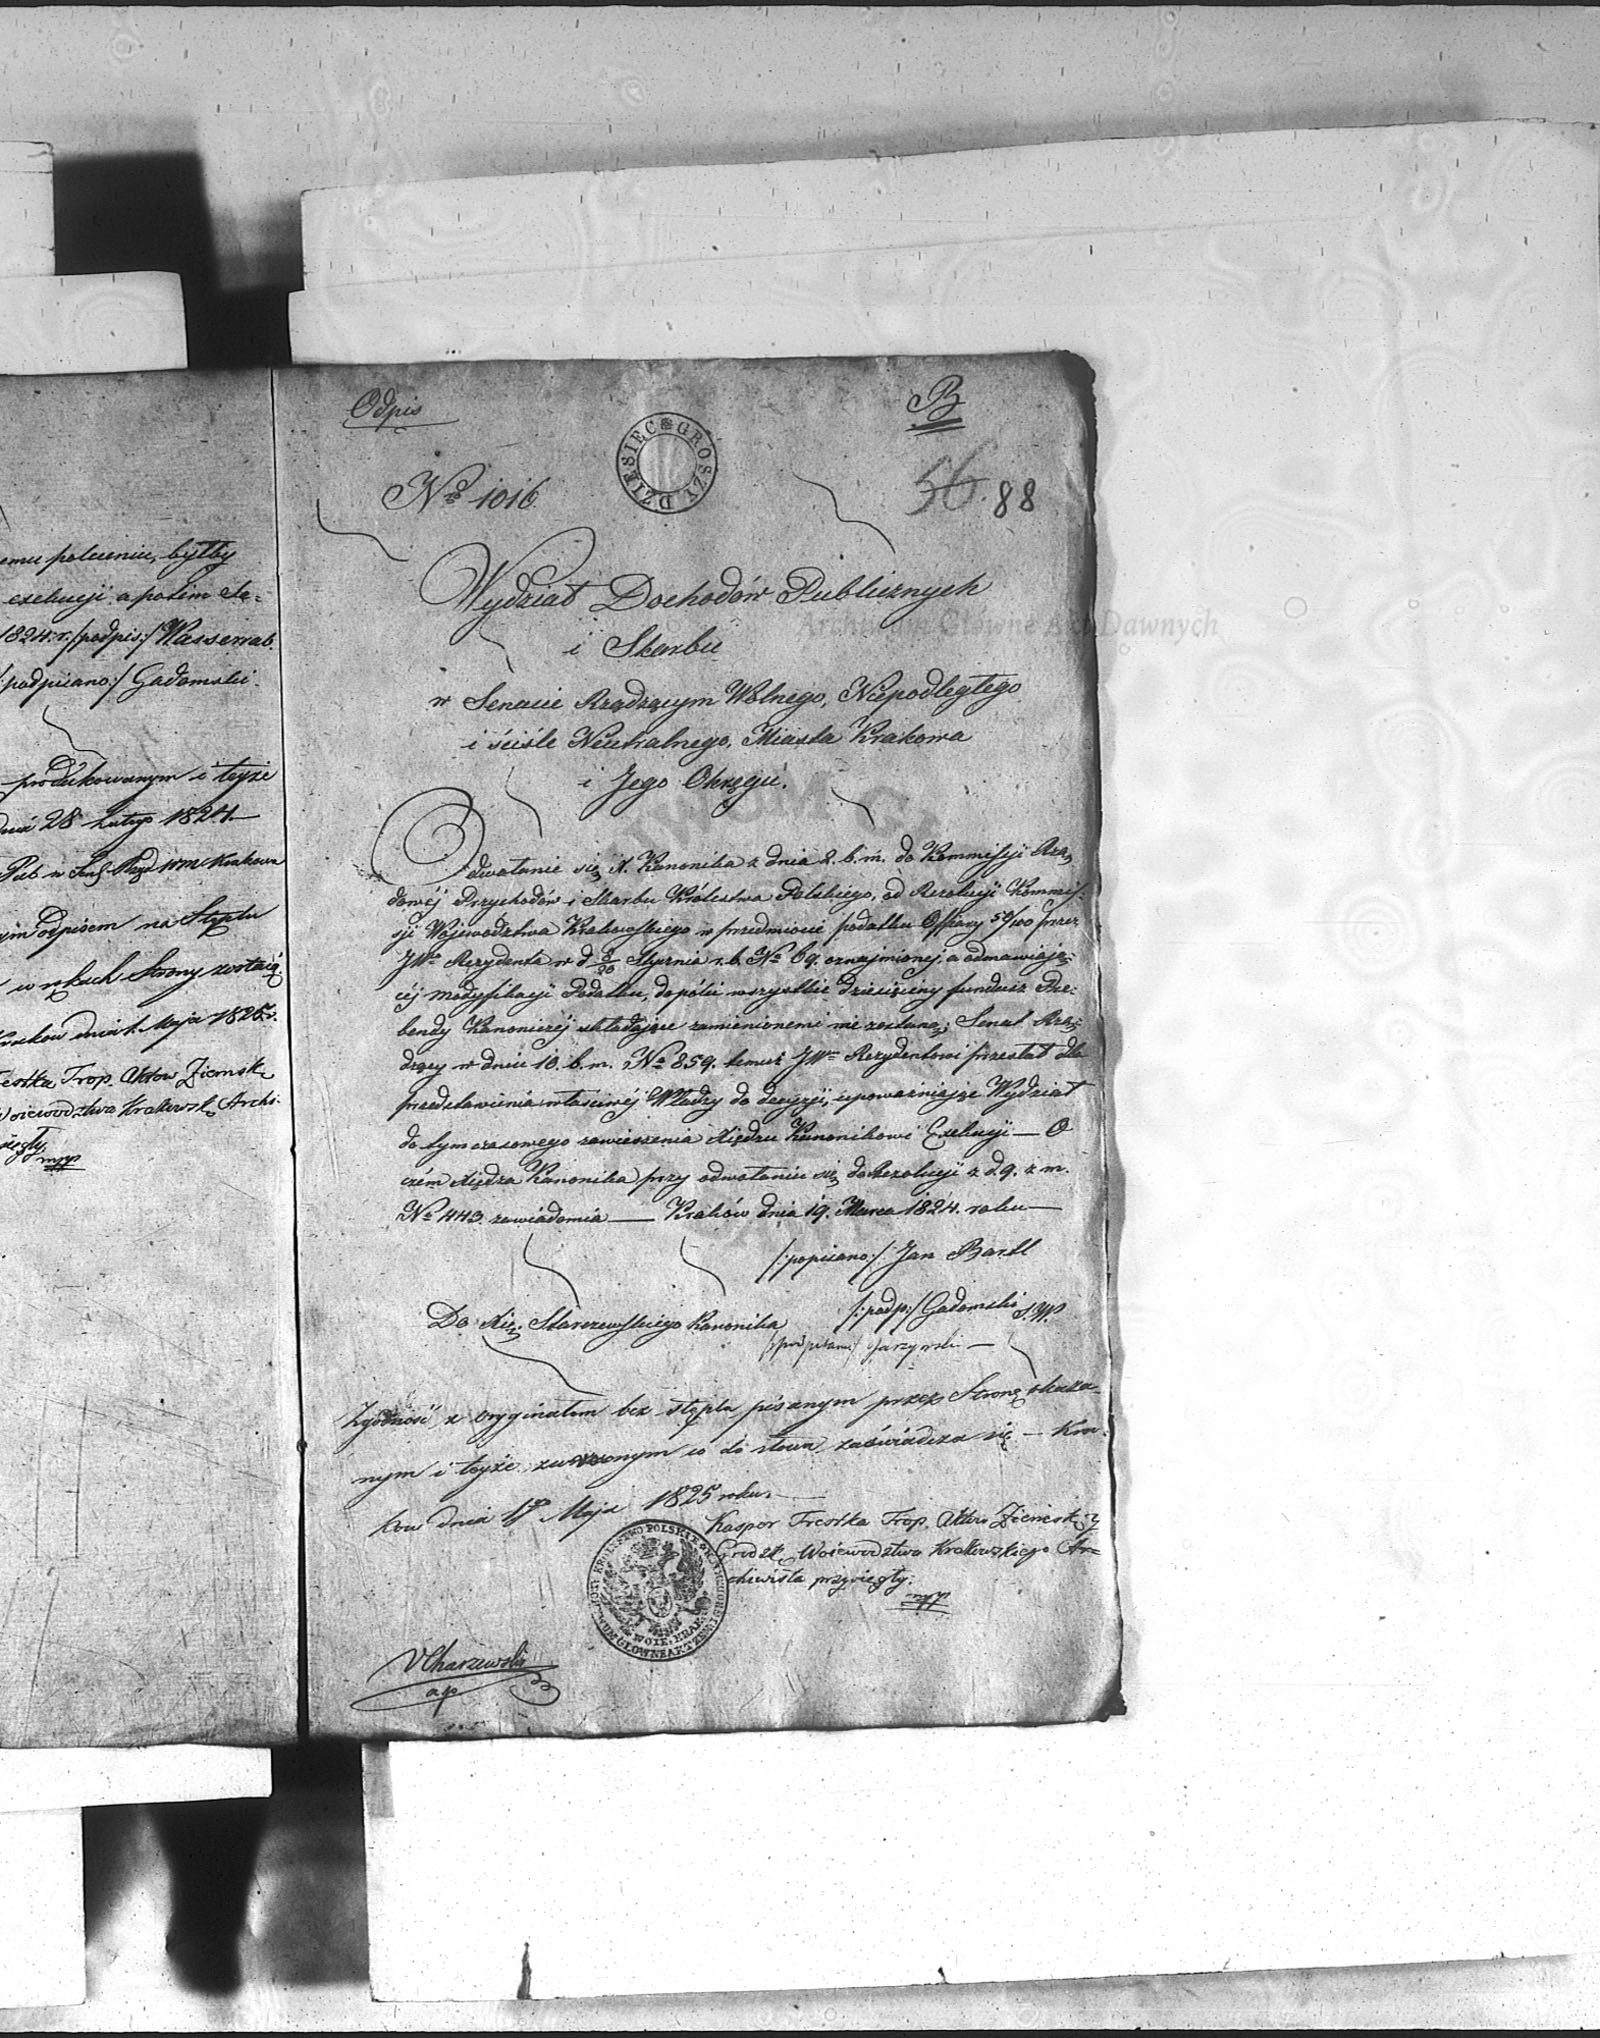 emu poleceniu, byłby
exekucji a potem Se-
1824. r. /podpis:/ Wasserrab.
/:podpisano:/ Gadomski.
produkowanym i teyże
dnia 28 Lutego 1824.
Pub. w Krakowa
odpisem na Stęplu
w rękach Strony zostaią
Kraków dnia 1. Maja 1825. r.
Trestka Trop. Aktow Ziemsk.
Woiewodztwa Krakowsk. Archi-
mpp
Odpis
B
DZIESIĘC GROSZY
No 1016.
56. 88
Wydział Dochodów Publicznych
i Skarbu
w Senacie Rządzącym Wolnego, Niepodległego
i ściśle Neutralnego, Miasta Krakowa
i Jego Okręgu.
Archiwum Główne Akt Dawnych
Odwołanie się X. Kanonika z dnia 2. b. m. do Kommissyi Rzą-
dowéj Przychodów i Skarbu Królestwa Polskiego, od Rezolucyi Kommis-
syi Województwa Krakowskiego w przedmiocie podatku Offiary 50/100 przez
JWo Rezydenta w d. 8/20 Stycznia r. b. No 69. oznajmionej, a odmawiają-
céj modyfikacyi Podatku, dopóki wszystkie dziesięciny fundusz Pre-
bendy Kanoniczéj składające zamienionemi nie zostaną; Senat Rzą-
dzący w dniu 10. b. m. No 859. temuż JWo Rezydentowi przesłał dla
przedstawienia właściwéj Władzy do decyzji, upoważniając Wydział
do tymczasowego zawieszenia Xiędzu Kanonikowi Exekucji — O
czém Xiędza Kanonika przy odwołaniu się do Rezolucji z d. 9. z. m.
No 443. zawiadomia — Kraków dnia 19. Marca 1824. roku —
/:popisano:/ Jan Bartl
/:podp:/ Gadomski S. W.
Do Xię. Starzewskiego Kanonika
/:podpisano:/ —
Zgodność z oryginałem bez stępla pisanym przez Stronę okaza-
nym i teyże zwroconym co do słowa zaświadcza się — Kra-
ków dnia 1go Maja 1825 roku. —
Kasper Trestka Trop. Aktow Ziemsk. y
Grodzk. Woiewodztwa Krakowskiego Ar-
chiwista przysięgły.
mpp
KRÓLESTWO POLSKIE
WOIE. KRAK.
VCharzewski